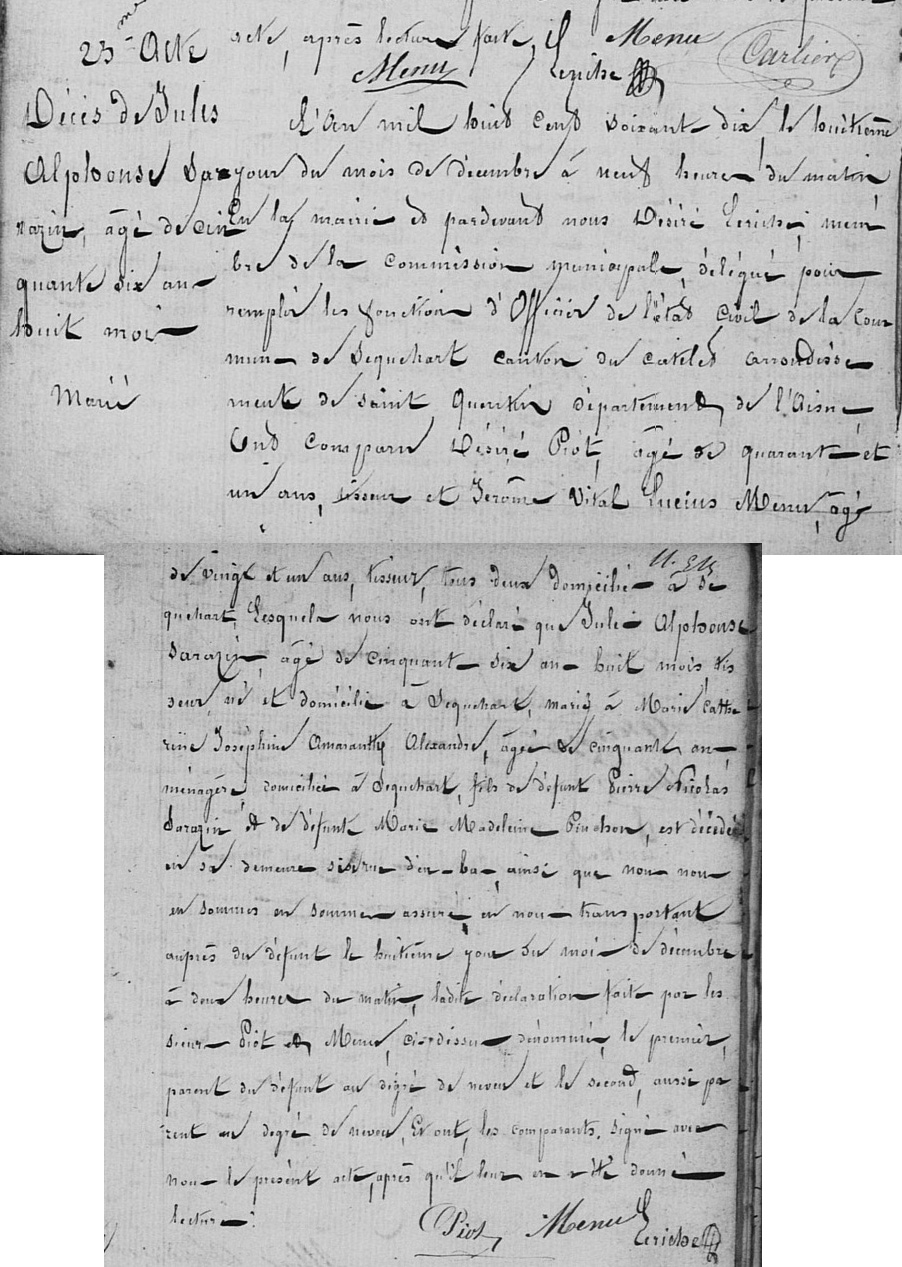 23me Acte
Décès de Jules
Alphonse Sa=
razin, âgé de cin
quante six an
huit moi
Marié
acte, après lecture faite,
Menu
Carlier
Menu
Leriche
L'An mil huit cent soixante dix le huitième
jour du mois de décembre à neuf heure du matin
En la mairie et pardevant nous Désiré Leriche, mem
bre de la Commission municipale, délégué pour
remplir les fonction d'Officier de l'état Civil de la Com
mun de Sequehart canton du catelet arrondisse
ment de Saint Quentin département de l'Aisne
Ont comparu Désiré Piot, âgé de quarante et
un ans, tisseur et Jerôme Vital Lucius Menu, âgé
de vingt et un ans, tisseur, tous deux domicilié à Se
quehart, Lesquels nous ont déclaré que Jule Alphonse
Sarazin, âgé de cinquante six an huit mois, tis
seur, né et domicilié à Sequehart, marié à Marie Cathe
rine Joséphine Amaranthe Alexandre, âgée de cinquante an
ménagère, domiciliée à Sequehart, fils de défunt Pierre Nicolas
Sarazin et de défunte Marie Madeleine Pinchon, est décédé
en sa demeure sise rue d'en-ba, ainsi que nou nou
en sommes en somme assuré, en nou transportant
auprès du défunt le huitième jour du moi de décembre
à deux heures du matin, ladite déclaration faite par les
sieur Piot et Menu, ci-dessu dénommé, le premier,
parent du défunt au dégré de neveu et le second, aussi pa
rent au degré de neveu, Et ont, les comparants, signé avec
nou le présent acte, après qu'il leur en a été donné
lecture.
Piot
Menu
Leriche